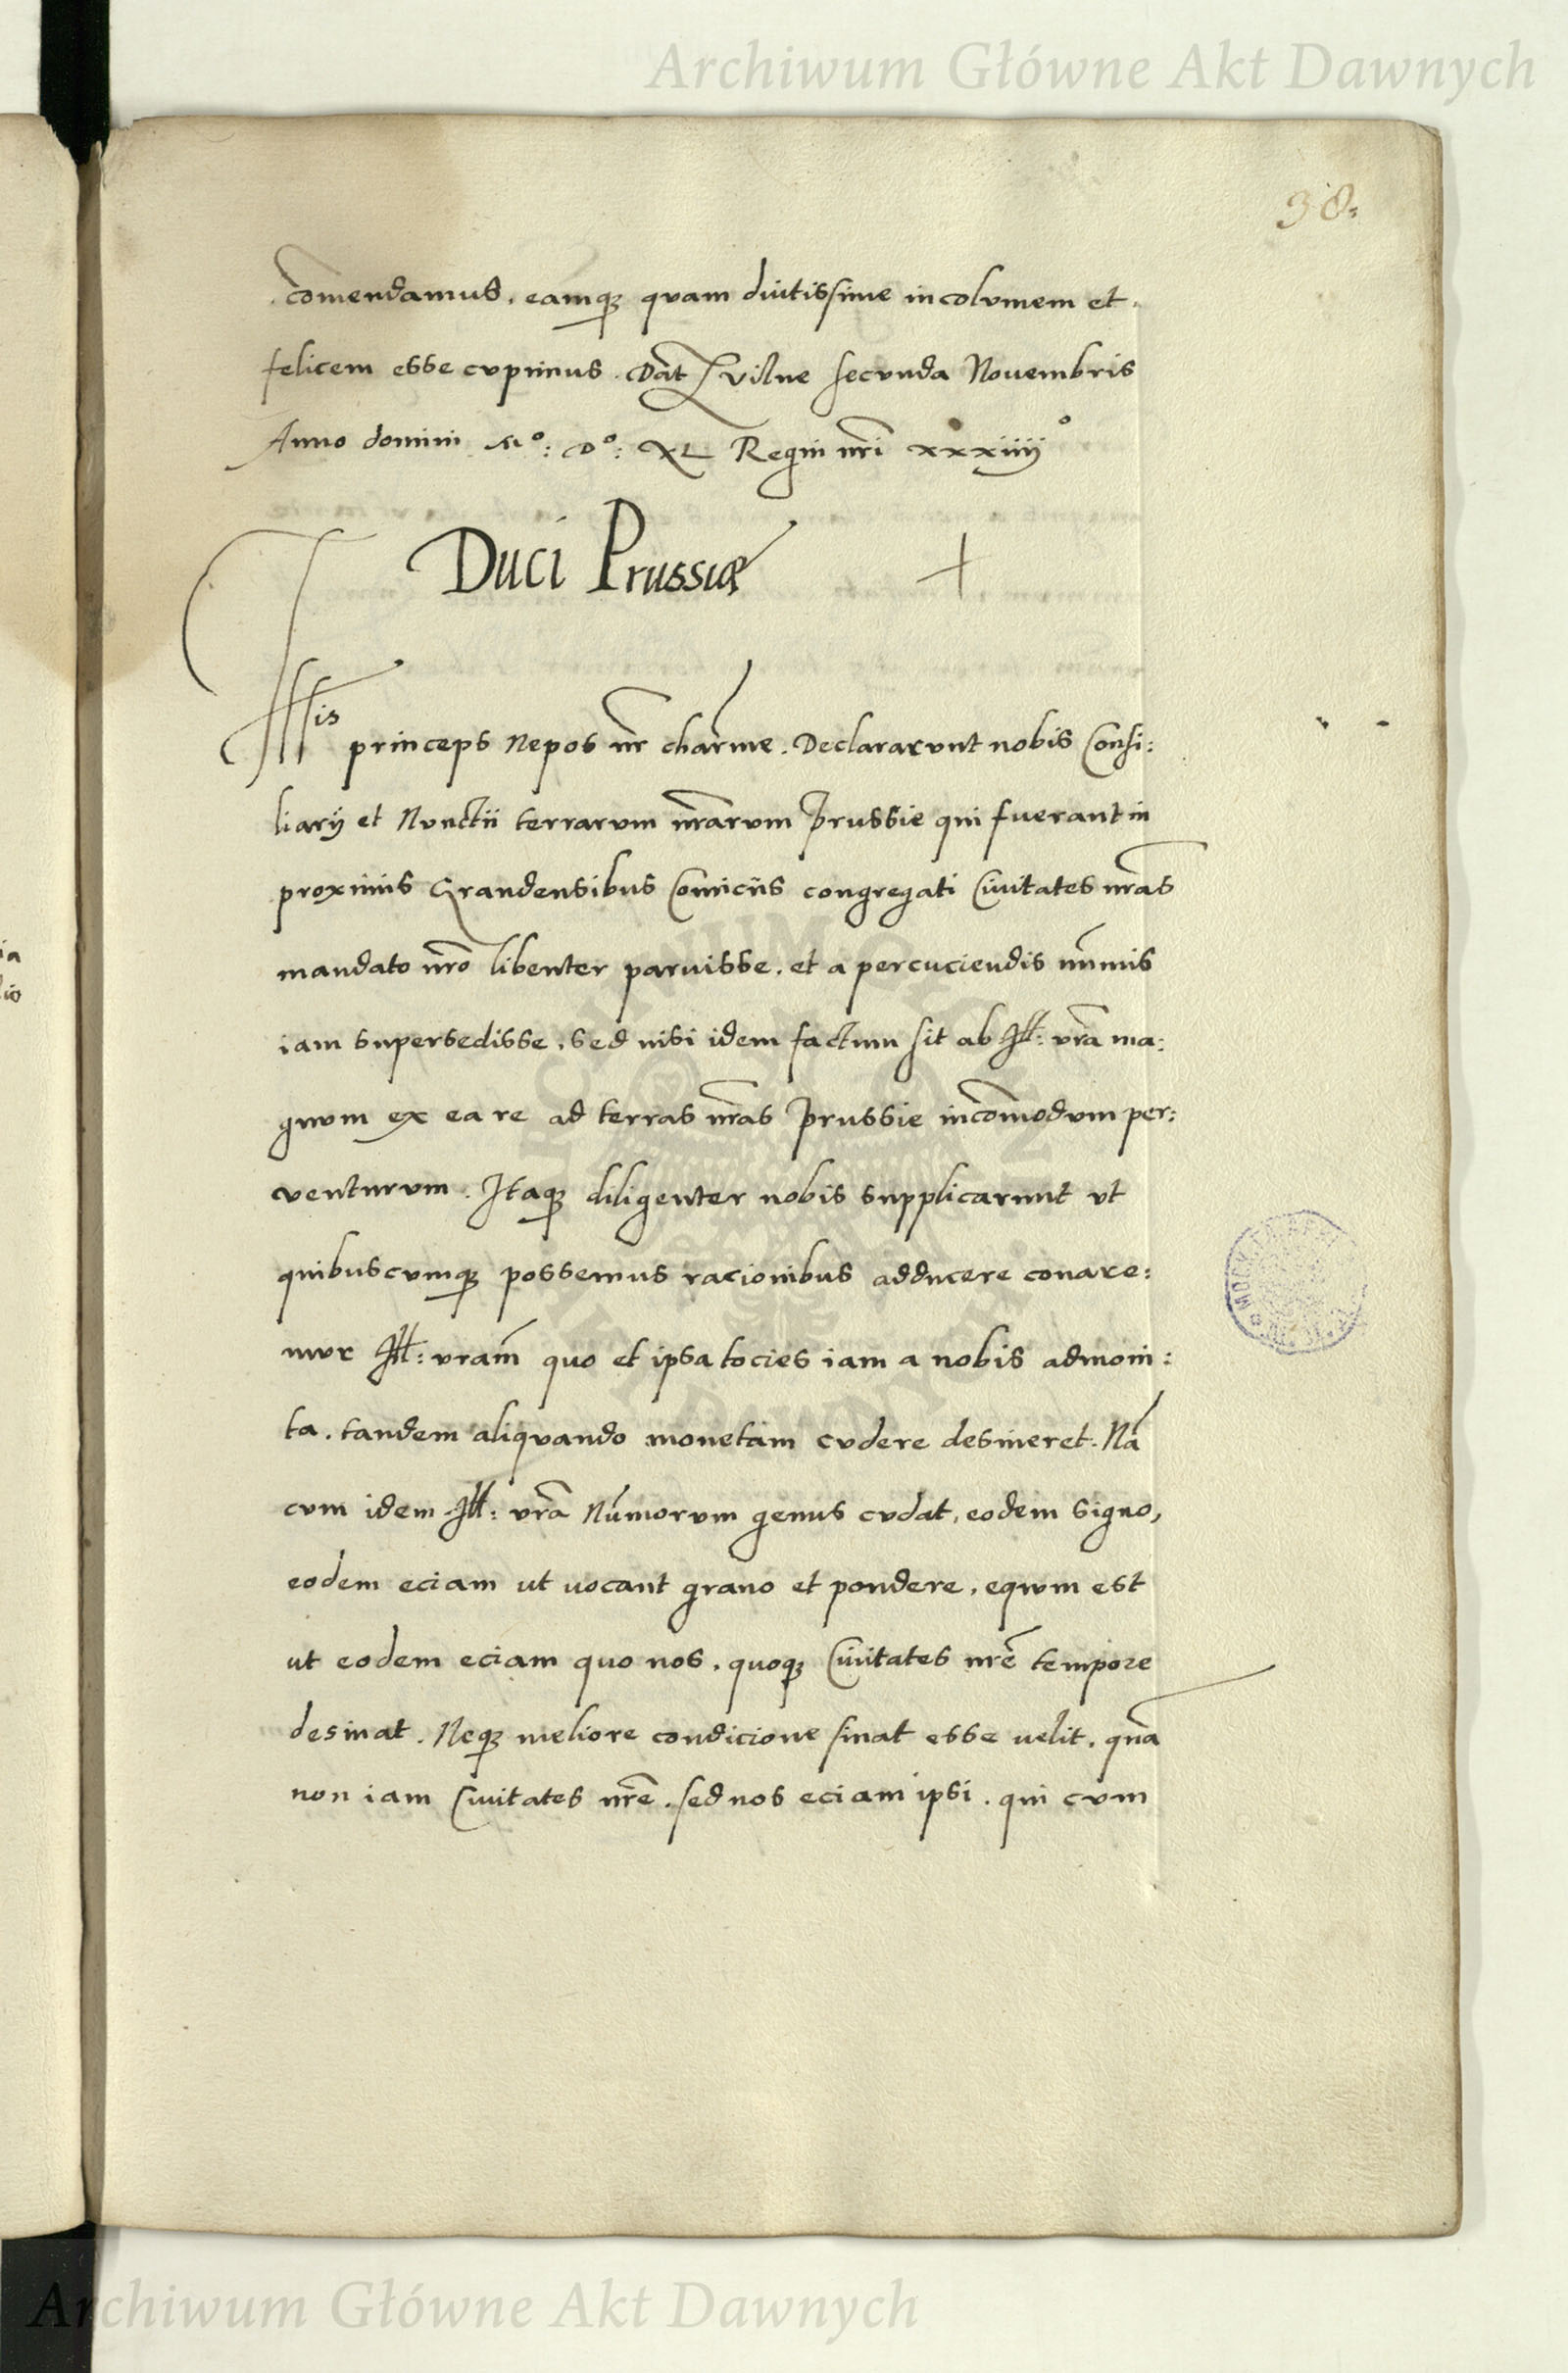 Archiwum Główne Akt Dawnych
38
com̄endamus, eamq3 quam diutissime incolvmem et
felicem esse cupimus. Dat̄ Vilne secvnda Novembris
Anno domini Mº: Dº: XL Regni nr̄i xxxiiiiº
Duci Prussiæ
Illis princeps Nepos nr̄ charme. Declararvnt nobis Consi:
liarij et Nvnctii terrarvm nr̄arvm Prussie qui fverant in
proximis Grandensibus Comiciis congregati Civitates nr̄as
mandato nr̄o libenter parvisse, et a percuciendis num̄is
iam supersedisse, sed nisi idem factum sit ab Ill: vr̄a ma:
gnvm ex ea re ad terras nr̄as Prussie incom̄odvm per:
venturvm. Itaq3 diligenter nobis supplicarunt vt
quibuscvmq3 possemus racionibus adducere conare:
mvr Ill: vr̄am quo et ipsa tocies iam a nobis admoni:
ta, tandem aliqvando monetam cvdere desineret. Nā
cvm idem Ill: vr̄a Nūmorvm genus cvdat, eodem signo,
eodem eciam ut vocant grano et pondere, eqvvm est
ut eodem eciam quo nos, quoq3 Civitates nr̄e tempore
desinat. Neq3 meliore condicione sinat esse velit, qna̅
non iam Civitates nr̄e, sed nos eciam ipsi, qui cvm
Archiwum Główne Akt Dawnych